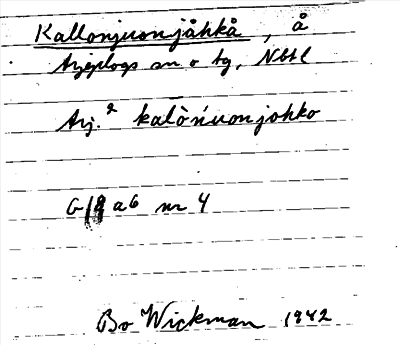 Kallonjuonjåhkå, å
Arjeplogs sn o tg, Nbtl
Arj. kalòńuonjohko
G 18 a6 nr 4
Bo Wickman 1942